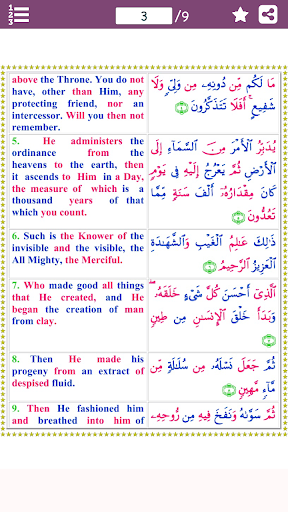 1
2
3
3
/9
above the Throne. You do not
have, other than Him, any
protecting friend, nor an
intercessor. Will you then not
remember.
مَا لَكُم مِّن دُونِهِۦ مِن وَلِىٍّ وَلَا
شَفِيعٍ ۚ أَفَلَا تَتَذَكَّرُونَ
5. He administers the
ordinance from the
heavens to the earth, then
it ascends to Him in a Day,
the measure of which is a
thousand years of that
which you count.
يُدَبِّرُ ٱلْأَمْرَ مِنَ ٱلسَّمَآءِ إِلَى
ٱلْأَرْضِ ثُمَّ يَعْرُجُ إِلَيْهِ فِى يَوْمٍ
كَانَ مِقْدَارُهُۥٓ أَلْفَ سَنَةٍ مِّمَّا
تَعُدُّونَ
6. Such is the Knower of the
invisible and the visible, the
All Mighty, the Merciful.
ذَٰلِكَ عَٰلِمُ ٱلْغَيْبِ وَٱلشَّهَٰدَةِ
ٱلْعَزِيزُ ٱلرَّحِيمُ
7. Who made good all things
that He created, and He
began the creation of man
from clay.
ٱلَّذِىٓ أَحْسَنَ كُلَّ شَىْءٍ خَلَقَهُۥ ۖ
وَبَدَأَ خَلْقَ ٱلْإِنسَٰنِ مِن طِينٍ
8. Then He made his
progeny from an extract of
despised fluid.
ثُمَّ جَعَلَ نَسْلَهُۥ مِن سُلَٰلَةٍ مِّن
مَّآءٍ مَّهِينٍ
9. Then He fashioned him
and breathed into him of
ثُمَّ سَوَّىٰهُ وَنَفَخَ فِيهِ مِن رُّوحِهِۦ ۖ